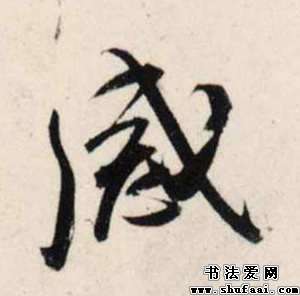 威
书法爱网
www.shufaai.com